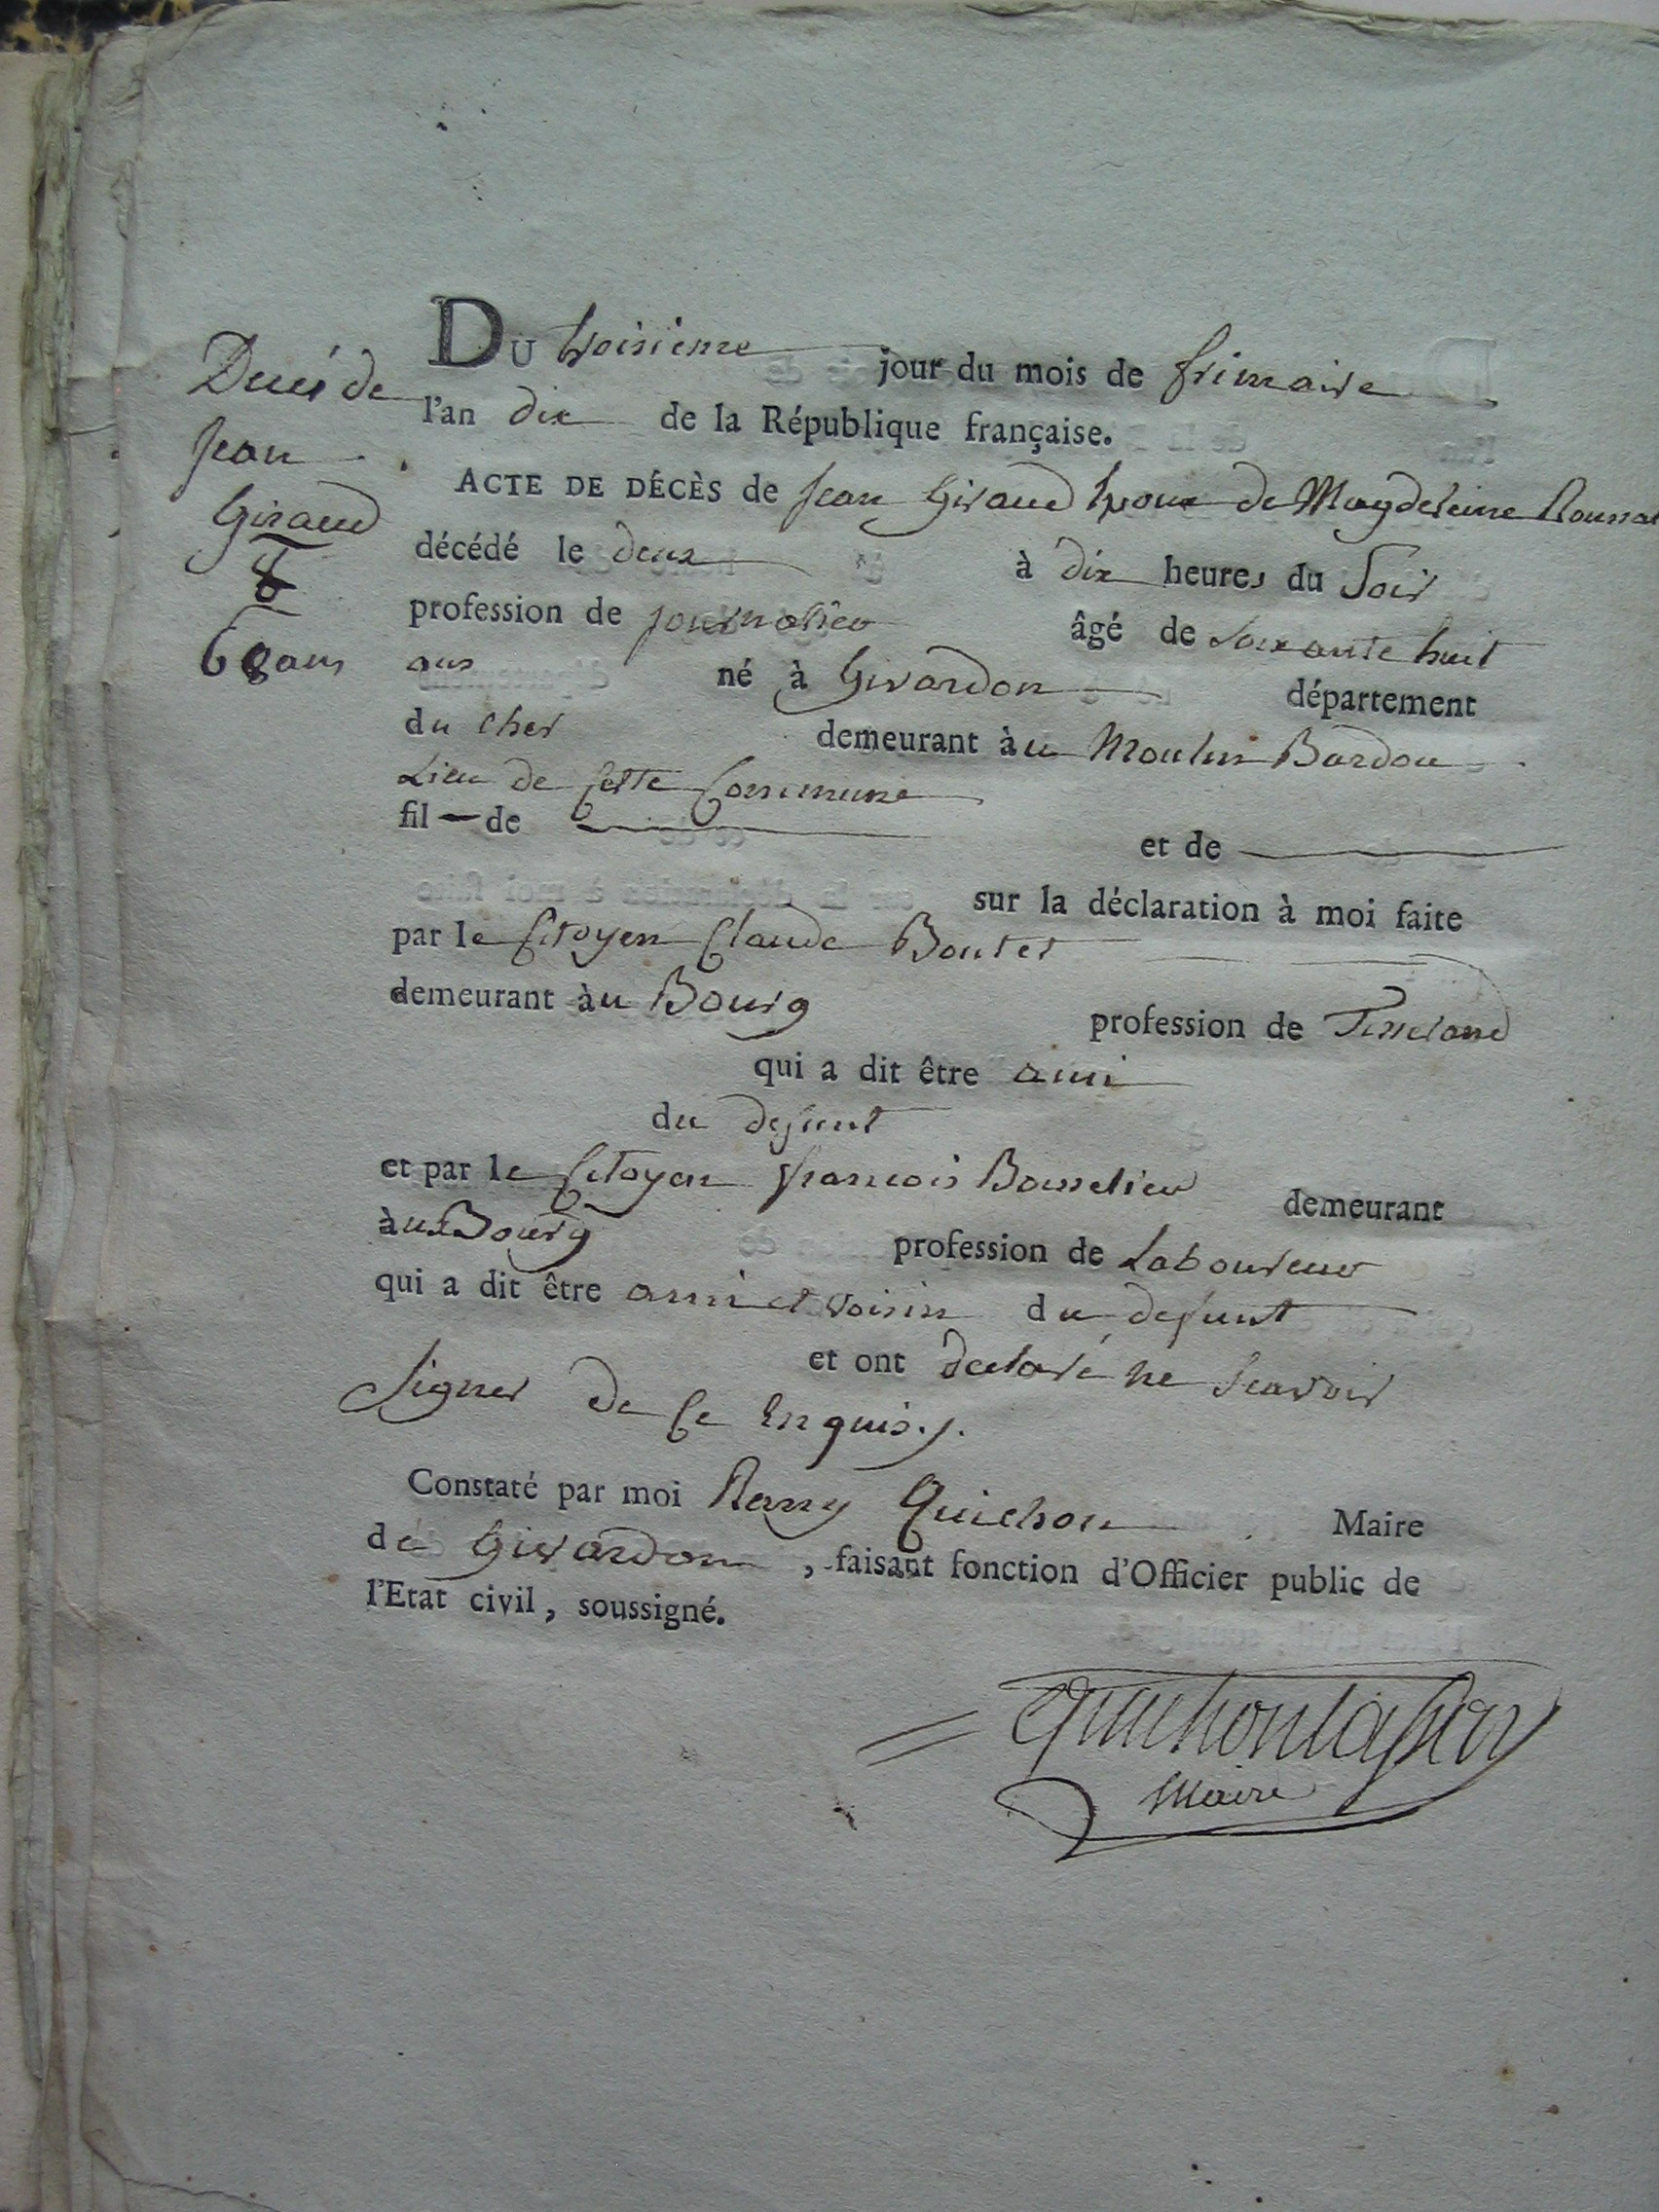 Decés de
Jean
Giraud
8
68 ans
DU troisieme jour du mois de frimaire
l'an dix de la République française.
ACTE DE DÉCÈS de Jean Giraud Epoux de Magdeleine
décédé le deux à dix heures du Soir
profession de journalier âgé de Soixante huit
ans né à Givardon département
du Cher demeurant àu Moulin Bardou
Lieu de Cette Commune
fil — de — et de —
sur la déclaration à moi faite
par le Citoyen Claude Boutet
demeurant àu Bourg profession de Tisserand
qui a dit être ami
du defunt
et par le Citoyen francois demeurant
àu Bourg profession de Laboureur
qui a dit être ami et voisin du defunt
et ont declaré ne Scavoir
Signer de Ce Enquis./.
Constaté par moi Remy Quichon Maire
de Givardon, faisant fonction d'Officier public de
l'Etat civil, soussigné.
Maire